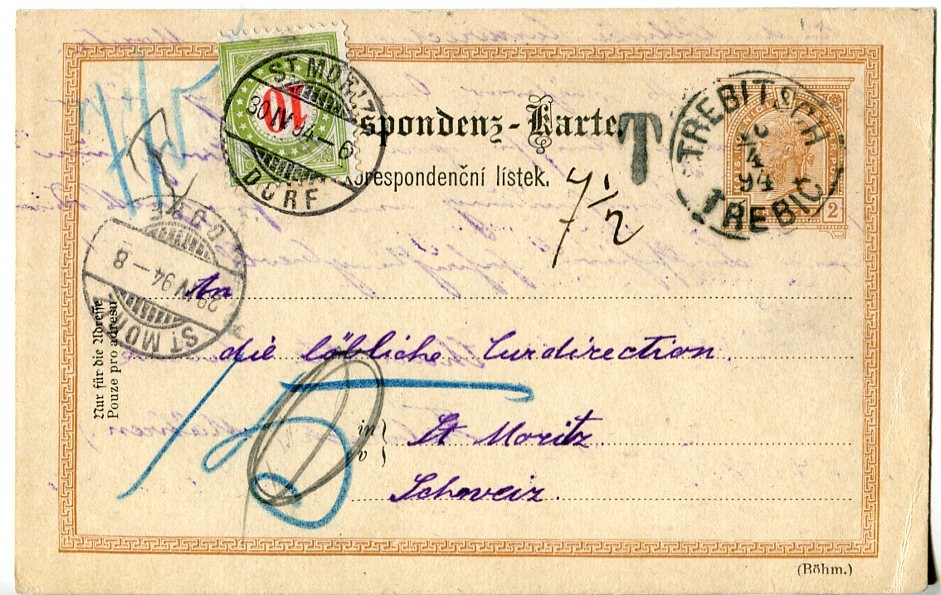 spondenz-Karte.
T
Korespondenční lístek.
7 1/2
TREBITSCH
4
94
TREBIČ
2
10
ST. MORIZ
30 IV 94 - 6
DORF
DORF
29 IV 94 - 8
ST. MO
Nur für die Adresse
Pouze pro adresu
An
die löbliche Curdirection.
in
v
St Moritz
Schweiz.
(Böhm.)